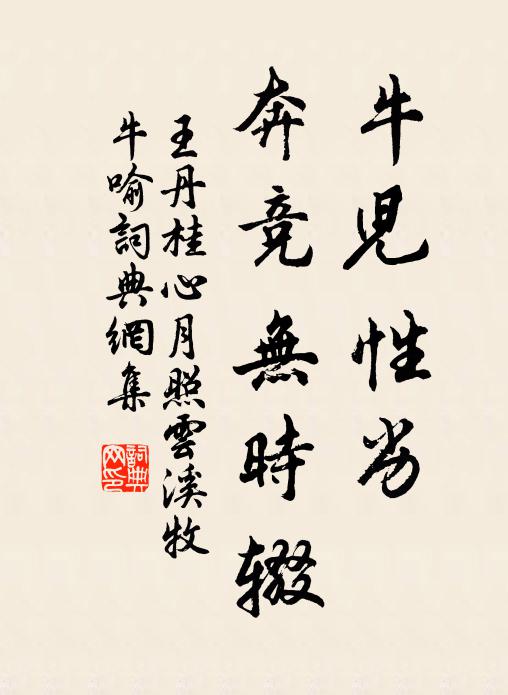 牛兒性劣
奔竞無時辍
王丹桂心月照雲溪牧
牛喻詞典網集
詞典
网印